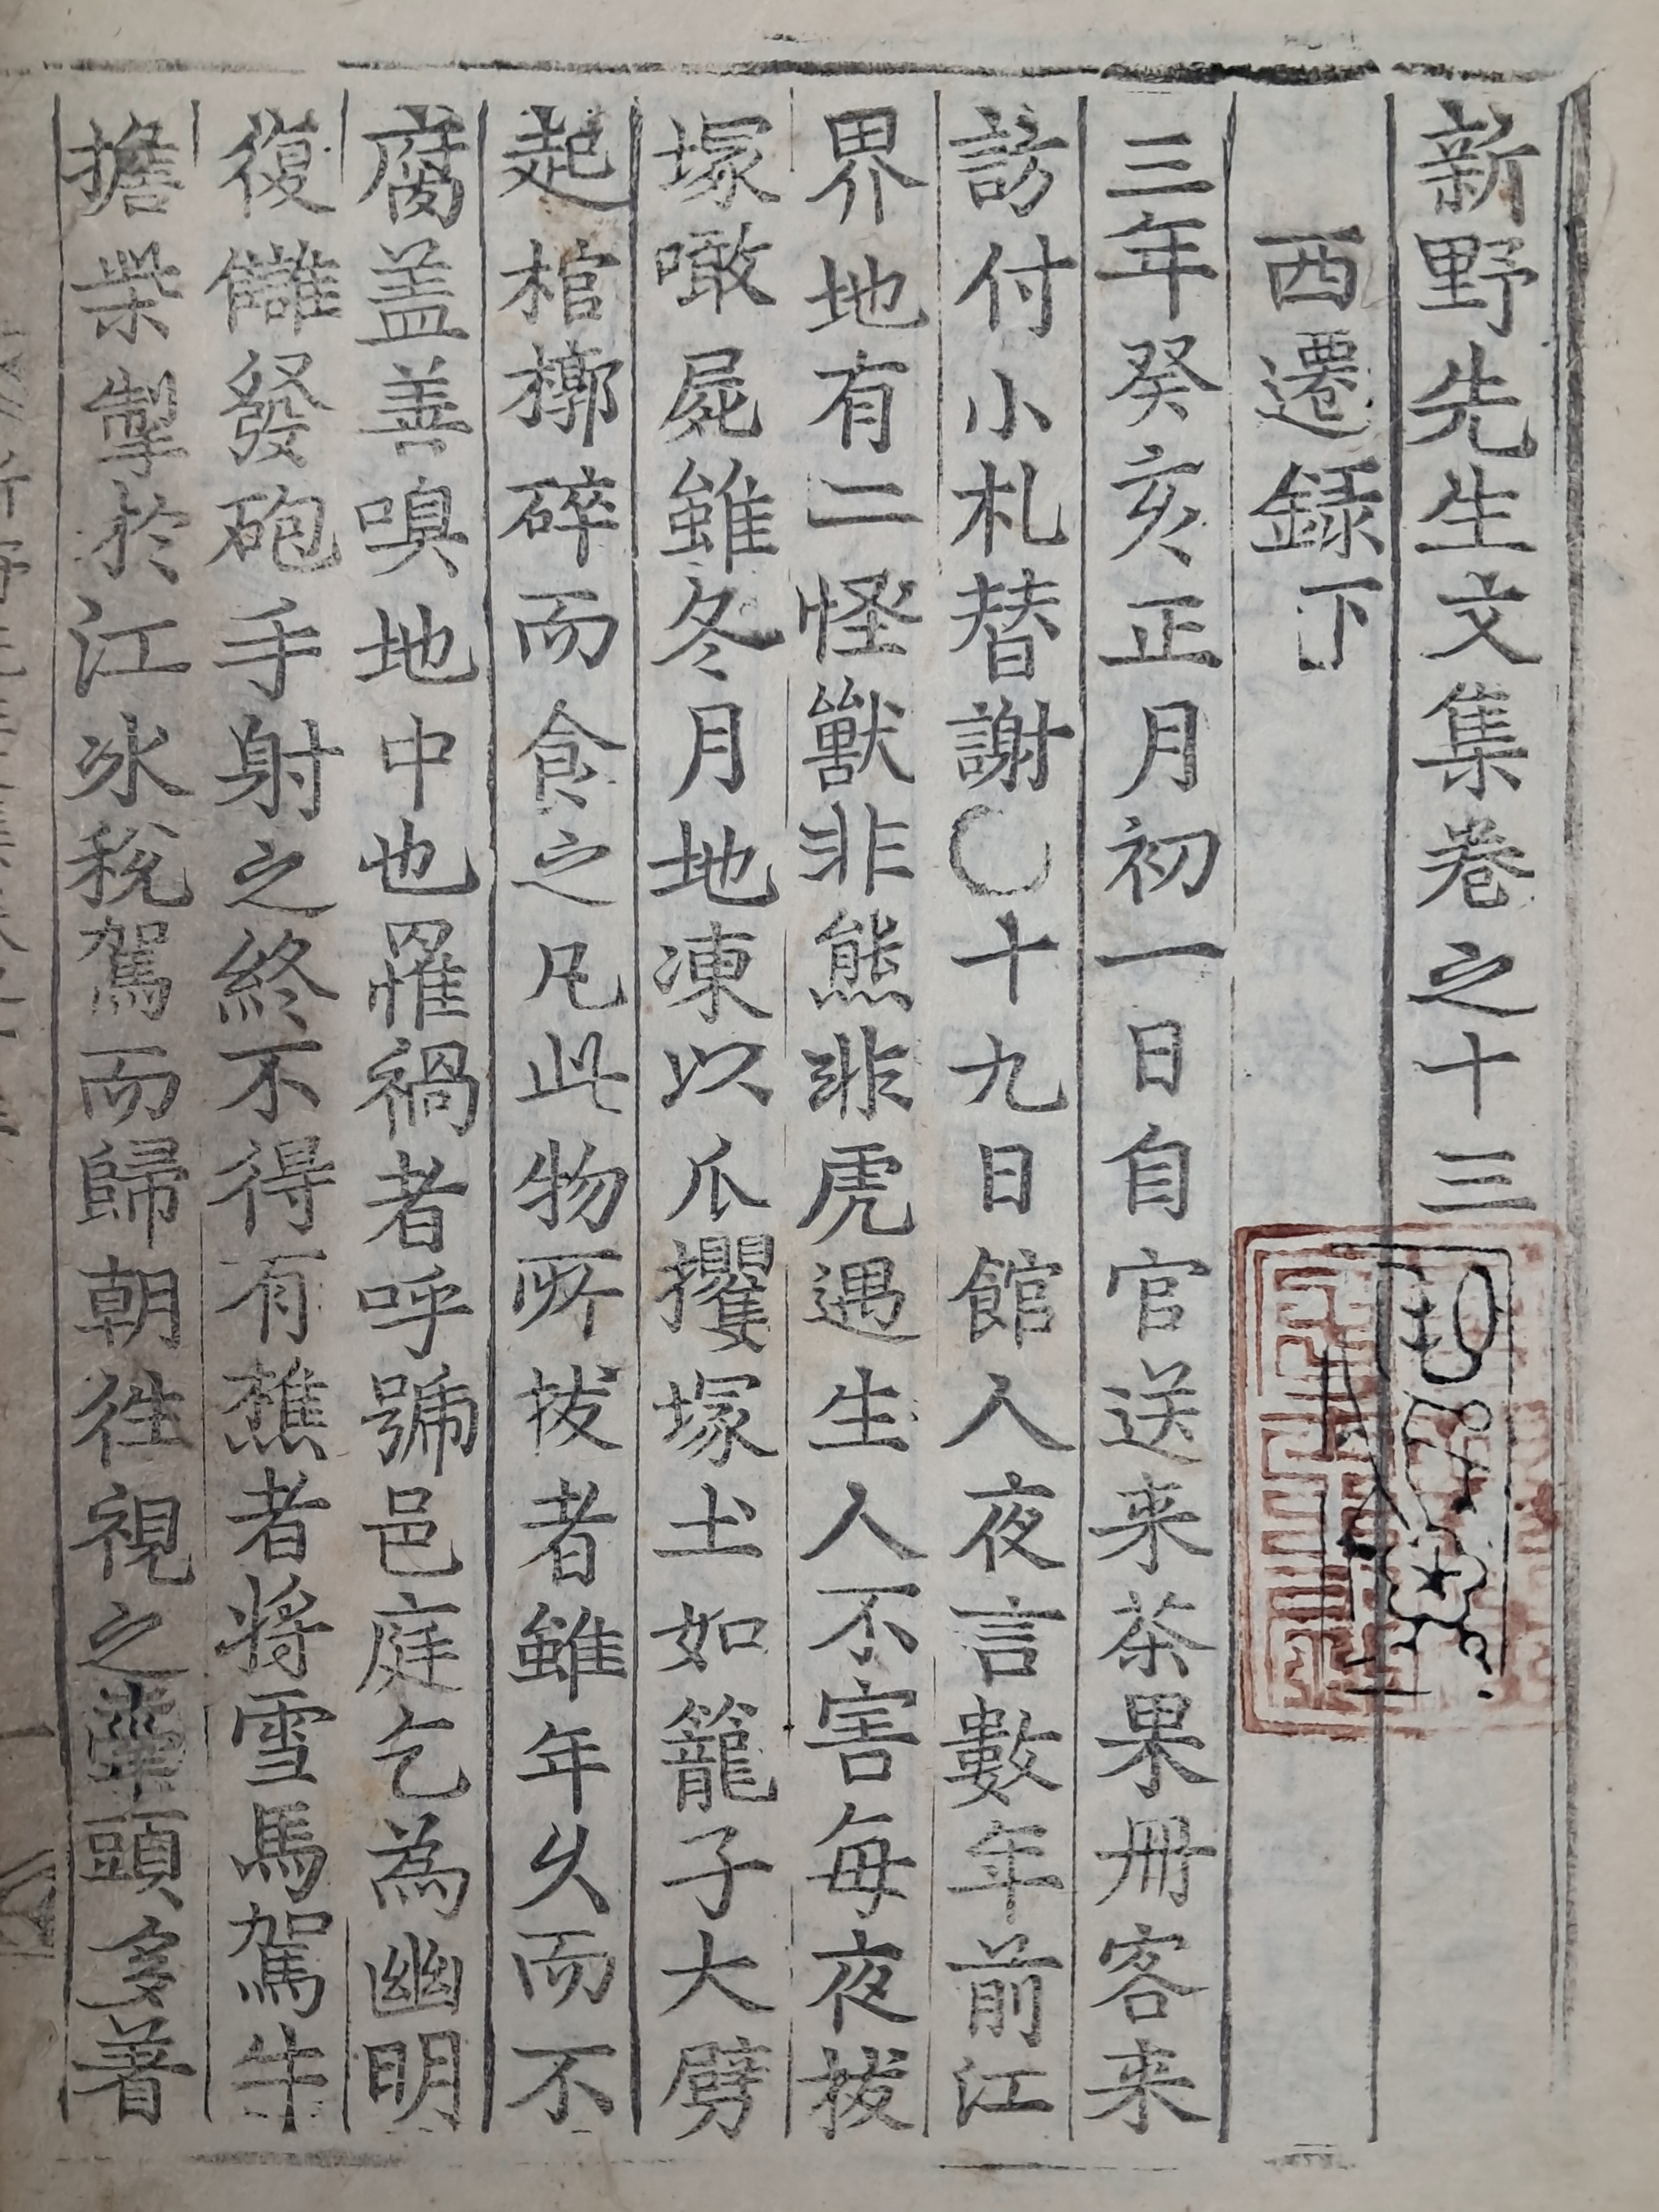 新野先生文集卷之十三
西遷録下
三年癸亥正月初一日自官送来茶果冊客来
訪付小札替謝〇十九日館人夜言數年前江
界地有二怪獸非熊非虎遇生人不害每夜拔
塚噉屍雖冬月地凍以爪攫塚土如籠子大劈
起棺槨碎而食之凡此物所拔者雖年久而不
腐盖善嗅地中也罹禍者呼號邑庭乞為幽明
復讎發砲手射之終不得有樵者将雪馬駕牛
擔柴掣於江氷稅駕而歸朝往視之 頭多著